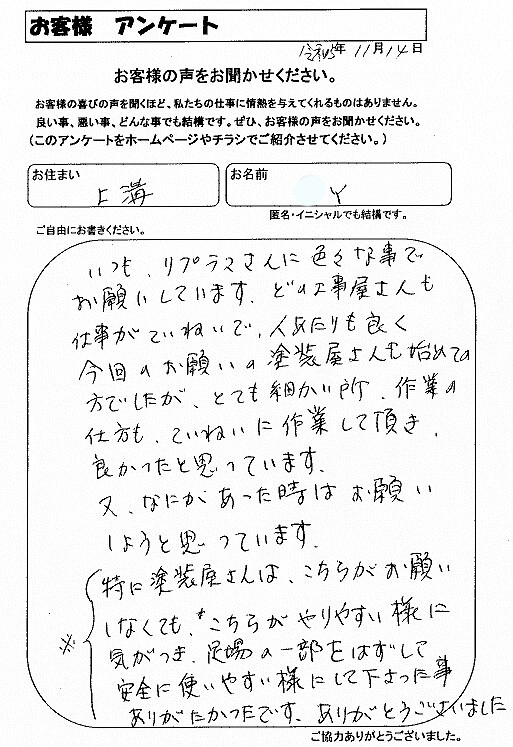 お客様 アンケート
令和5年 11月 14日
お客様の声をお聞かせください。
お客様の喜びの声を聞くほど、私たちの仕事に情熱を与えてくれるものはありません。
良い事、悪い事、どんな事でも結構です。ぜひ、お客様の声をお聞かせください。
(このアンケートをホームページやチラシでご紹介させてください。)
お住まい 上溝
お名前 Y
匿名・イニシャルでも結構です。
ご自由にお書きください。
いつも、リプラスさんに色々な事で
お願いしています。どの工事屋さんも
仕事がていねいで、人あたりも良く
今回のお願いの塗装屋さんも始めての
方でしたが、とても細かい所、作業の
仕方も、ていねいに作業して頂き、
良かったと思っています。
又、なにかあった時はお願い
しようと思っています。
※ 特に塗装屋さんは、こちらがお願い
しなくても、こちらがやりやすい様に
気がつき、足場の一部をはずして
安全に使いやすい様にして下さった事
ありがたかったです、ありがとうございました
ご協力ありがとうございました。